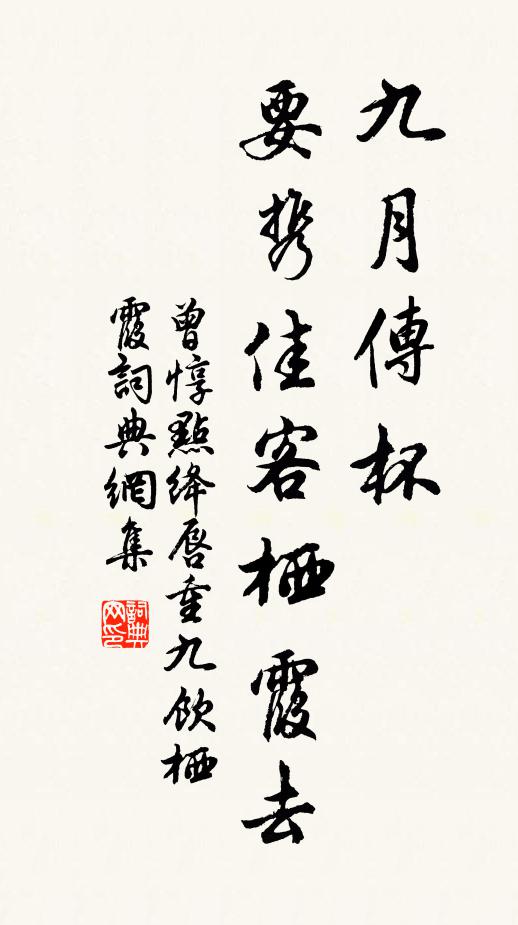 九月傳杯
要携佳客栖霞去
曾惇點絳唇重九飲栖
霞詞典網集
詞典網印